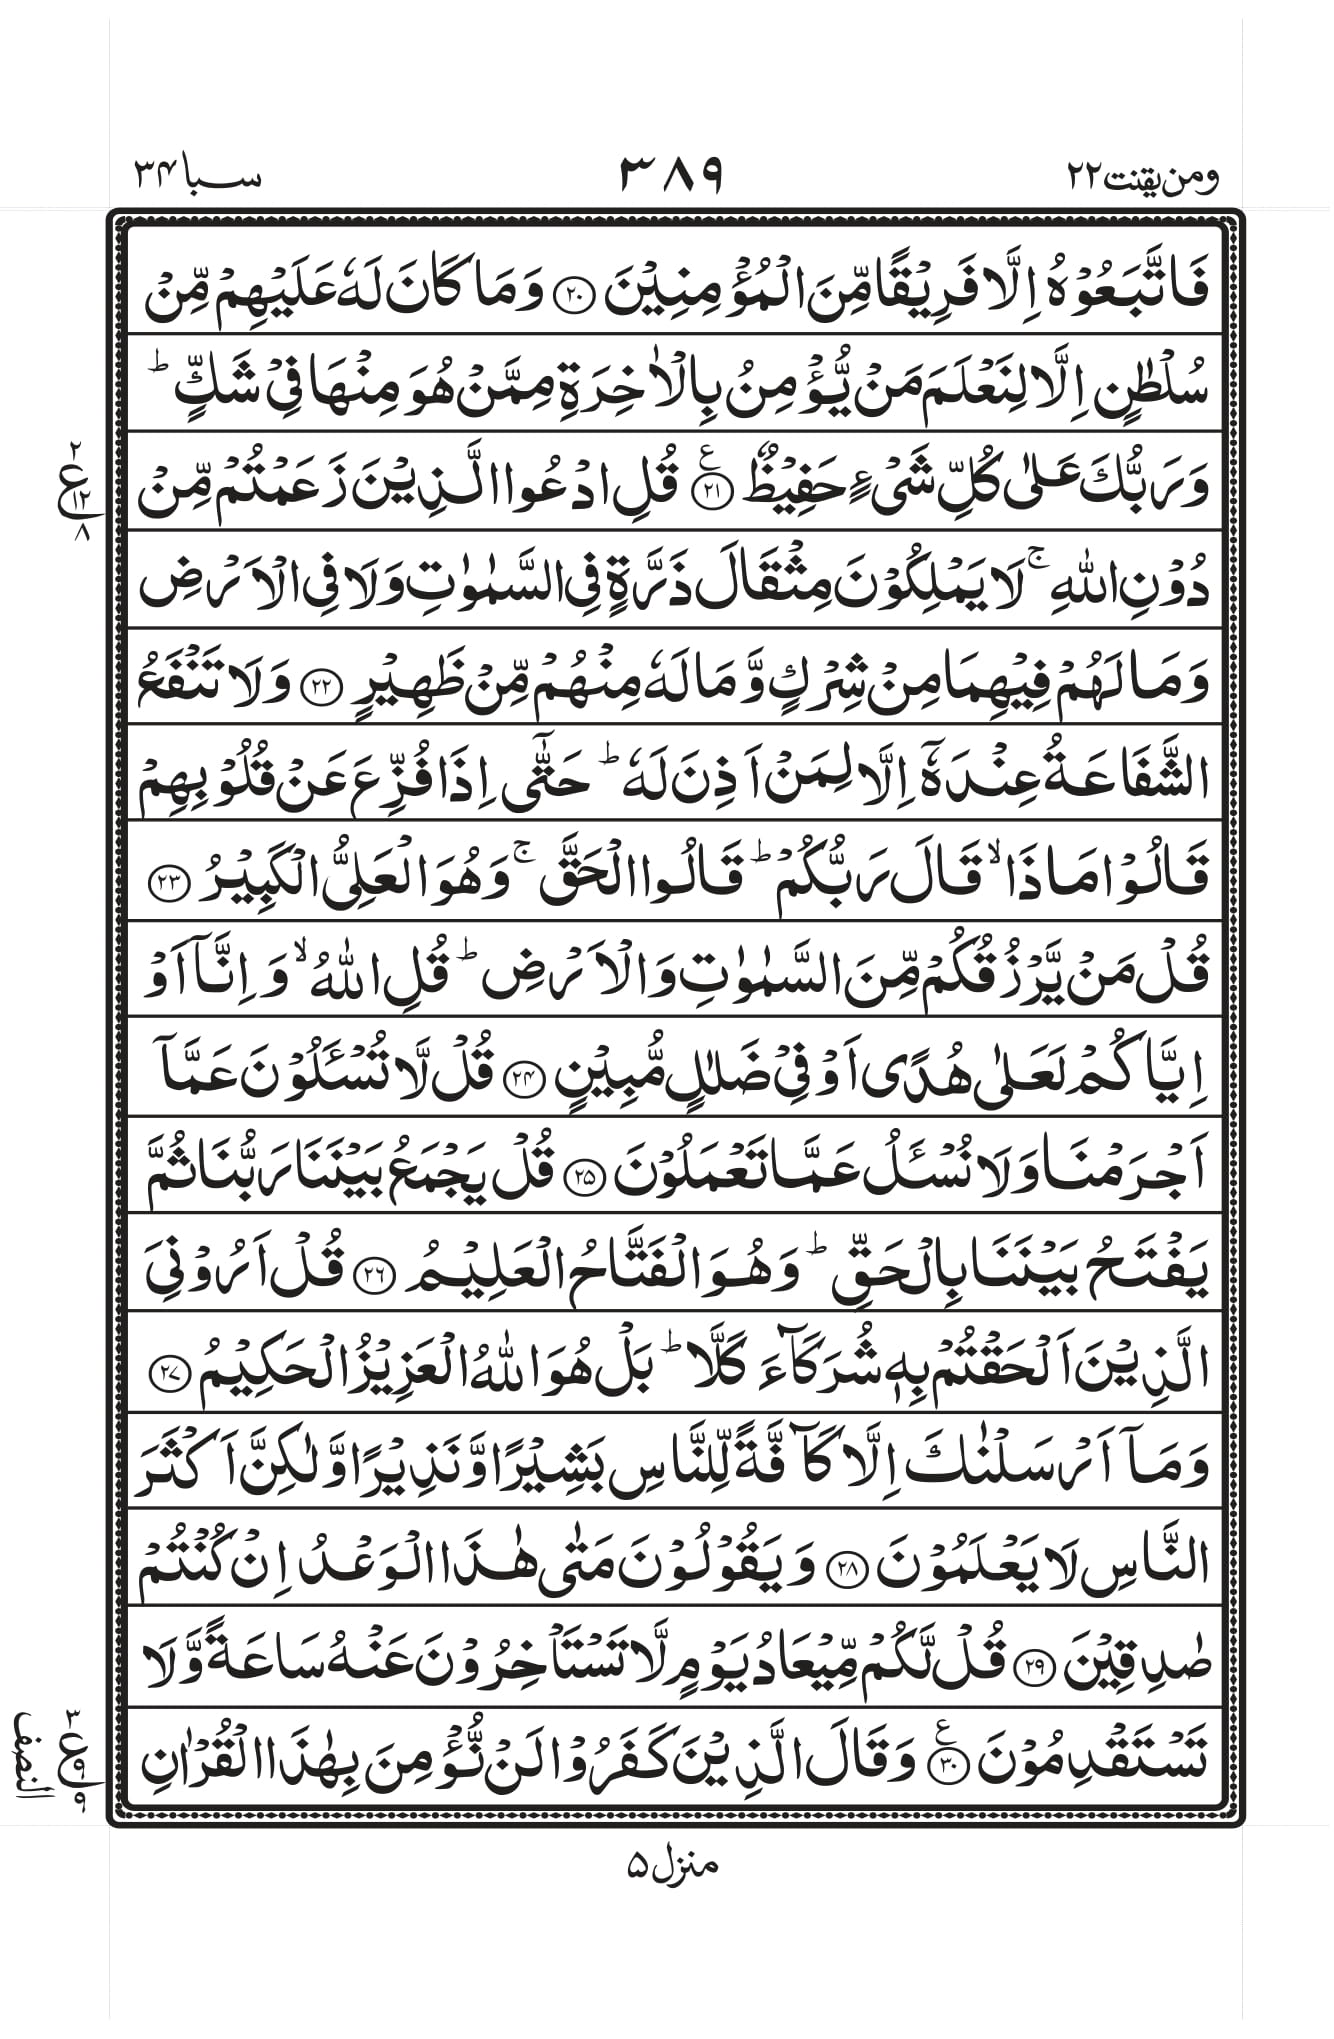 ومن یقنت ۲۲
۳۸۹
سبا ۳۴
فَاتَّبَعُوْهُ اِلَّا فَرِیْقًا مِّنَ الْمُؤْمِنِیْنَ ﴿۲۰﴾ وَمَا كَانَ لَهٗ عَلَیْهِمْ مِّنْ
سُلْطٰنٍ اِلَّا لِنَعْلَمَ مَنْ یُّؤْمِنُ بِالْاٰخِرَةِ مِمَّنْ هُوَ مِنْهَا فِیْ شَكٍّ ؕ
وَرَبُّكَ عَلٰی كُلِّ شَیْءٍ حَفِیْظٌ ﴿۲۱﴾ ع قُلِ ادْعُوا الَّذِیْنَ زَعَمْتُمْ مِّنْ
۲
ع
۱۲
۸
دُوْنِ اللّٰهِ ۚ لَا یَمْلِكُوْنَ مِثْقَالَ ذَرَّةٍ فِی السَّمٰوٰتِ وَلَا فِی الْاَرْضِ
وَمَا لَهُمْ فِیْهِمَا مِنْ شِرْكٍ وَّمَا لَهٗ مِنْهُمْ مِّنْ ظَهِیْرٍ ﴿۲۲﴾ وَلَا تَنْفَعُ
الشَّفَاعَةُ عِنْدَهٗۤ اِلَّا لِمَنْ اَذِنَ لَهٗ ؕ حَتّٰۤی اِذَا فُزِّعَ عَنْ قُلُوْبِهِمْ
قَالُوْا مَاذَا ۙ قَالَ رَبُّكُمْ ؕ قَالُوا الْحَقَّ ۚ وَهُوَ الْعَلِیُّ الْكَبِیْرُ ﴿۲۳﴾
قُلْ مَنْ یَّرْزُقُكُمْ مِّنَ السَّمٰوٰتِ وَالْاَرْضِ ؕ قُلِ اللّٰهُ ۙ وَاِنَّاۤ اَوْ
اِیَّاكُمْ لَعَلٰی هُدًی اَوْ فِیْ ضَلٰلٍ مُّبِیْنٍ ﴿۲۴﴾ قُلْ لَّا تُسْـَٔلُوْنَ عَمَّاۤ
اَجْرَمْنَا وَلَا نُسْـَٔلُ عَمَّا تَعْمَلُوْنَ ﴿۲۵﴾ قُلْ یَجْمَعُ بَیْنَنَا رَبُّنَا ثُمَّ
یَفْتَحُ بَیْنَنَا بِالْحَقِّ ؕ وَهُوَ الْفَتَّاحُ الْعَلِیْمُ ﴿۲۶﴾ قُلْ اَرُوْنِیَ
الَّذِیْنَ اَلْحَقْتُمْ بِهٖ شُرَكَآءَ كَلَّا ؕ بَلْ هُوَ اللّٰهُ الْعَزِیْزُ الْحَكِیْمُ ﴿۲۷﴾
وَمَاۤ اَرْسَلْنٰكَ اِلَّا كَآفَّةً لِّلنَّاسِ بَشِیْرًا وَّنَذِیْرًا وَّلٰكِنَّ اَكْثَرَ
النَّاسِ لَا یَعْلَمُوْنَ ﴿۲۸﴾ وَیَقُوْلُوْنَ مَتٰی هٰذَا الْوَعْدُ اِنْ كُنْتُمْ
صٰدِقِیْنَ ﴿۲۹﴾ قُلْ لَّكُمْ مِّیْعَادُ یَوْمٍ لَّا تَسْتَاْخِرُوْنَ عَنْهُ سَاعَةً وَّلَا
تَسْتَقْدِمُوْنَ ﴿۳۰﴾ ع وَقَالَ الَّذِیْنَ كَفَرُوْا لَنْ نُّؤْمِنَ بِهٰذَا الْقُرْاٰنِ
۳
ع
۹
۹
النصف
منزل ۵